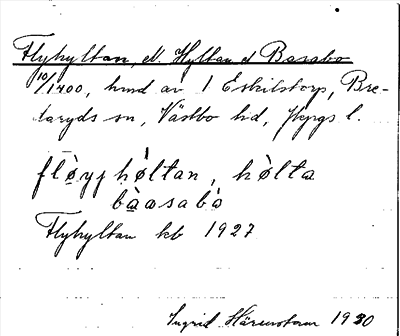 Flyhyltan, el. Hyltan el Basabo
10/1400, hmd av 1 Eskilstorp, Bre-
daryds sn, Västbo hd, Jkpgs l.
fløyjhøltan, hølta
bàasabò
Flyhyltan kb 1927
Ingrid 1930